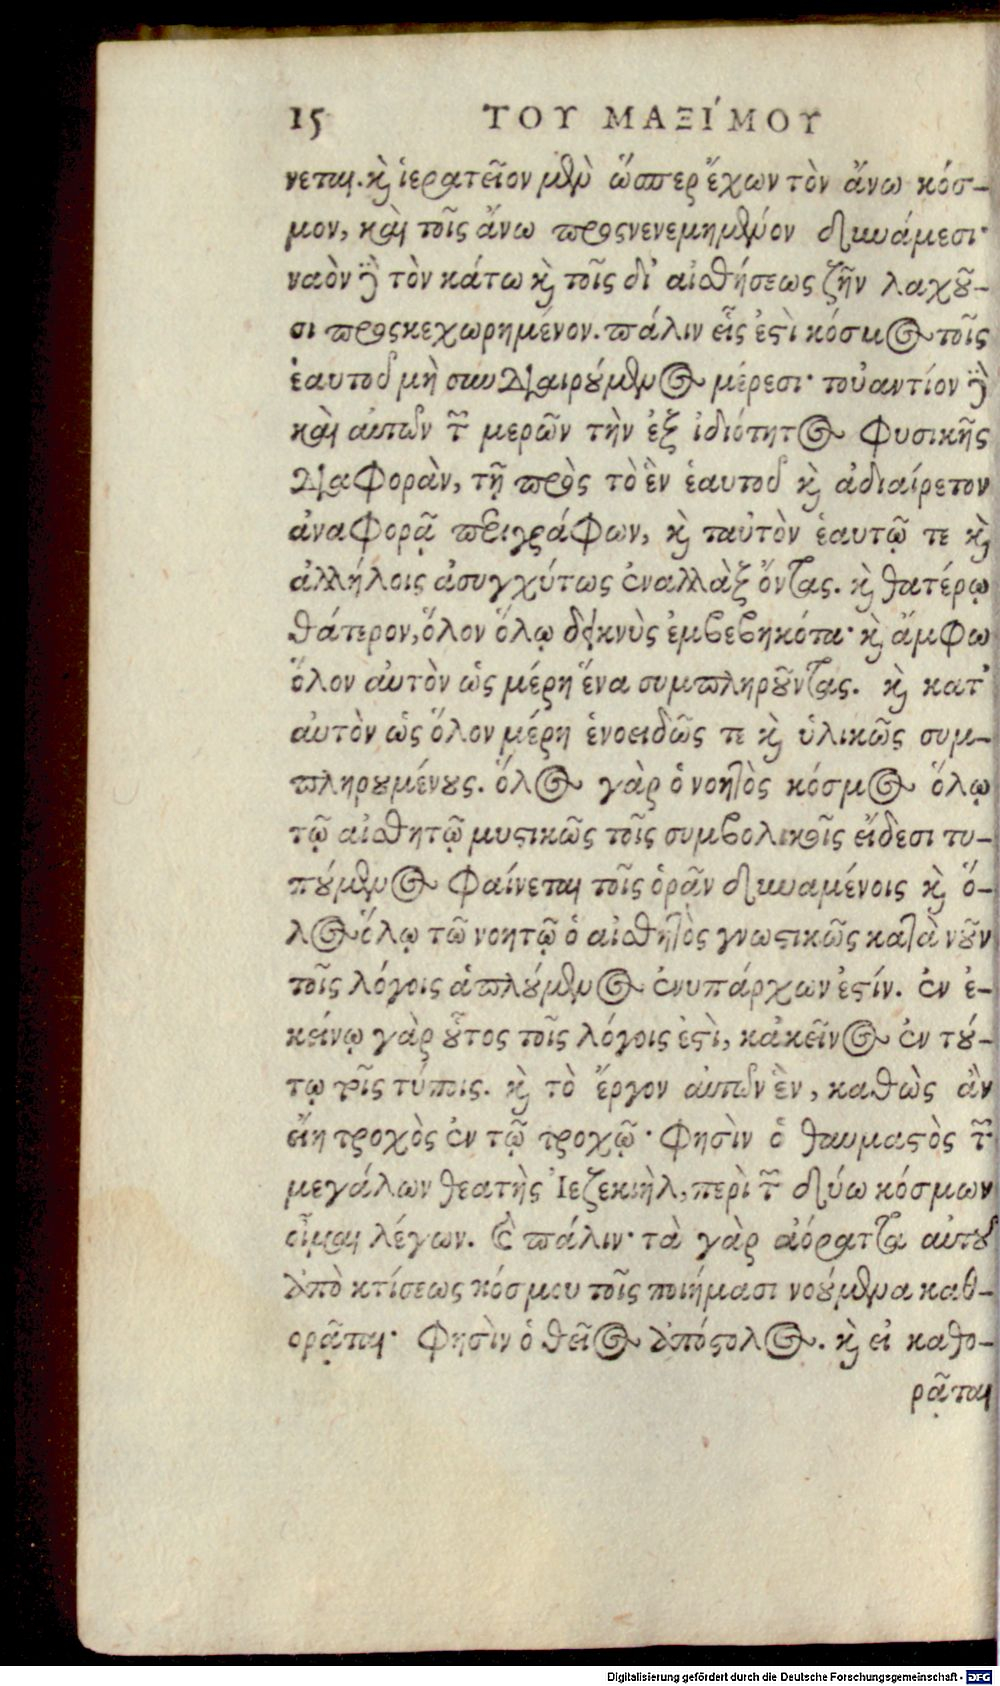 15 ΤΟΥ ΜΑΞΙ´ΜΟΥ
νεται. καὶ ἱερατεῖον μὲν ὥσπερ ἔχων τὸν ἄνω κόσ-
μον, καὶ τοῖς ἄνω προςνενεμημένον δυνάμεσι·
ναὸν δὲ τὸν κάτω καὶ τοῖς δι' αἰσθήσεως ζῆν λαχοῦ-
σι προςκεχωρημένον. πάλιν εἷς ἐστὶ κόσμος τοῖς
ἑαυτοῦ μὴ συνδιαιρούμενος μέρεσι· τοὐαντίον δὲ
καὶ αὐτῶν τῶν μερῶν τὴν ἐξ ἰδιότητος φυσικῆς
διαφορὰν, τῇ πρὸς τὸ ἓν ἑαυτοῦ καὶ ἀδιαίρετον
ἀναφορᾷ περιγράφων, καὶ ταὐτὸν ἑαυτῷ τε καὶ
ἀλλήλοις ἀσυγχύτως ἐναλλὰξ ὄντας. καὶ θατέρῳ
θάτερον, ὅλον ὅλῳ δεικνὺς ἐμβεβηκότα· καὶ ἄμφω
ὅλον αὐτὸν ὡς μέρη ἕνα συμπληροῦντας. καὶ κατ'
αὐτὸν ὡς ὅλον μέρη ἑνοειδῶς τε καὶ ὑλικῶς συμ-
πληρουμένους. ὅλος γὰρ ὁ νοητὸς κόσμος ὅλῳ
τῷ αἰσθητῷ μυστικῶς τοῖς συμβολικοῖς εἴδεσι τυ-
πούμενος φαίνεται τοῖς ὁρᾷν δυναμένοις καὶ ὅ-
λος ὅλῳ τῶ νοητῷ ὁ αἰσθητὸς γνωστικῶς κατὰ νοῦν
τοῖς λόγοις ἁπλούμενος ἐνυπάρχων ἐστίν. ἐν ἐ-
κείνῳ γὰρ οὗτος τοῖς λόγοις ἐστὶ, κἀκεῖνος ἐν τού-
τῳ τοῖς τύποις. καὶ τὸ ἔργον αὐτῶν ἓν, καθὼς ἂν
εἴη τροχὸς ἐν τῷ τροχῷ· φησὶν ὁ θαυμαστὸς τῶν
μεγάλων θεατὴς Ἰεζεκιὴλ, περὶ τῶν δύω κόσμων
οἶμαι λέγων. καὶ πάλιν· τὰ γὰρ ἀόρατα αὐτοῦ
ἀπὸ κτίσεως κόσμου τοῖς ποιήμασι νοούμενα καθ-
ορᾶται· φησὶν ὁ θεῖος ἀπόστολος. καὶ εἰ καθο-
ρᾶται
Digitalisierung gefördert durch die Deutsche Forschungsgemeinschaft - DFG